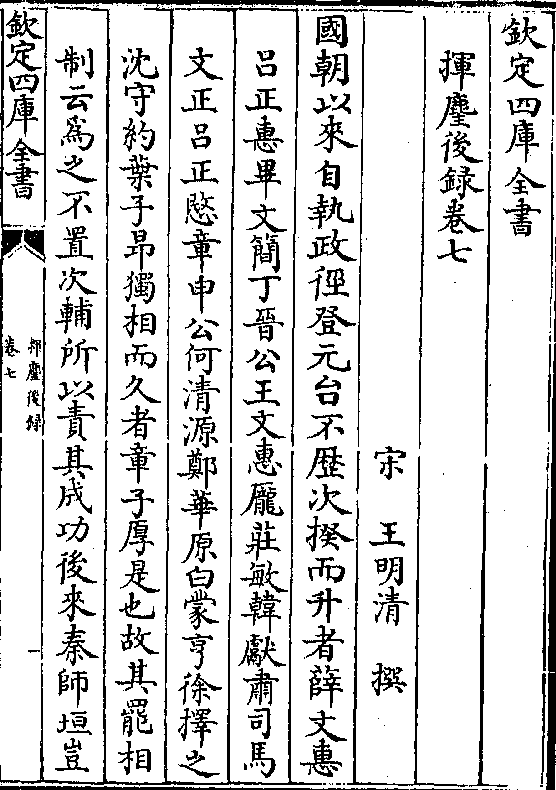 欽定四庫全書
揮麈後録卷七
宋 王明清 撰
國朝以來自執政徑登元台不歴次揆而升者薛文惠
吕正惠畢文簡丁晉公王文惠龐莊敏韓獻肅司馬
文正吕正愍章申公何清源鄭華原白蒙亨徐擇之
沈守約葉子昂獨相而久者章子厚是也故其罷相
制云爲之不置次輔所以責其成功後來秦師垣豈
欽定四庫全書
揮麈後録
卷七
一